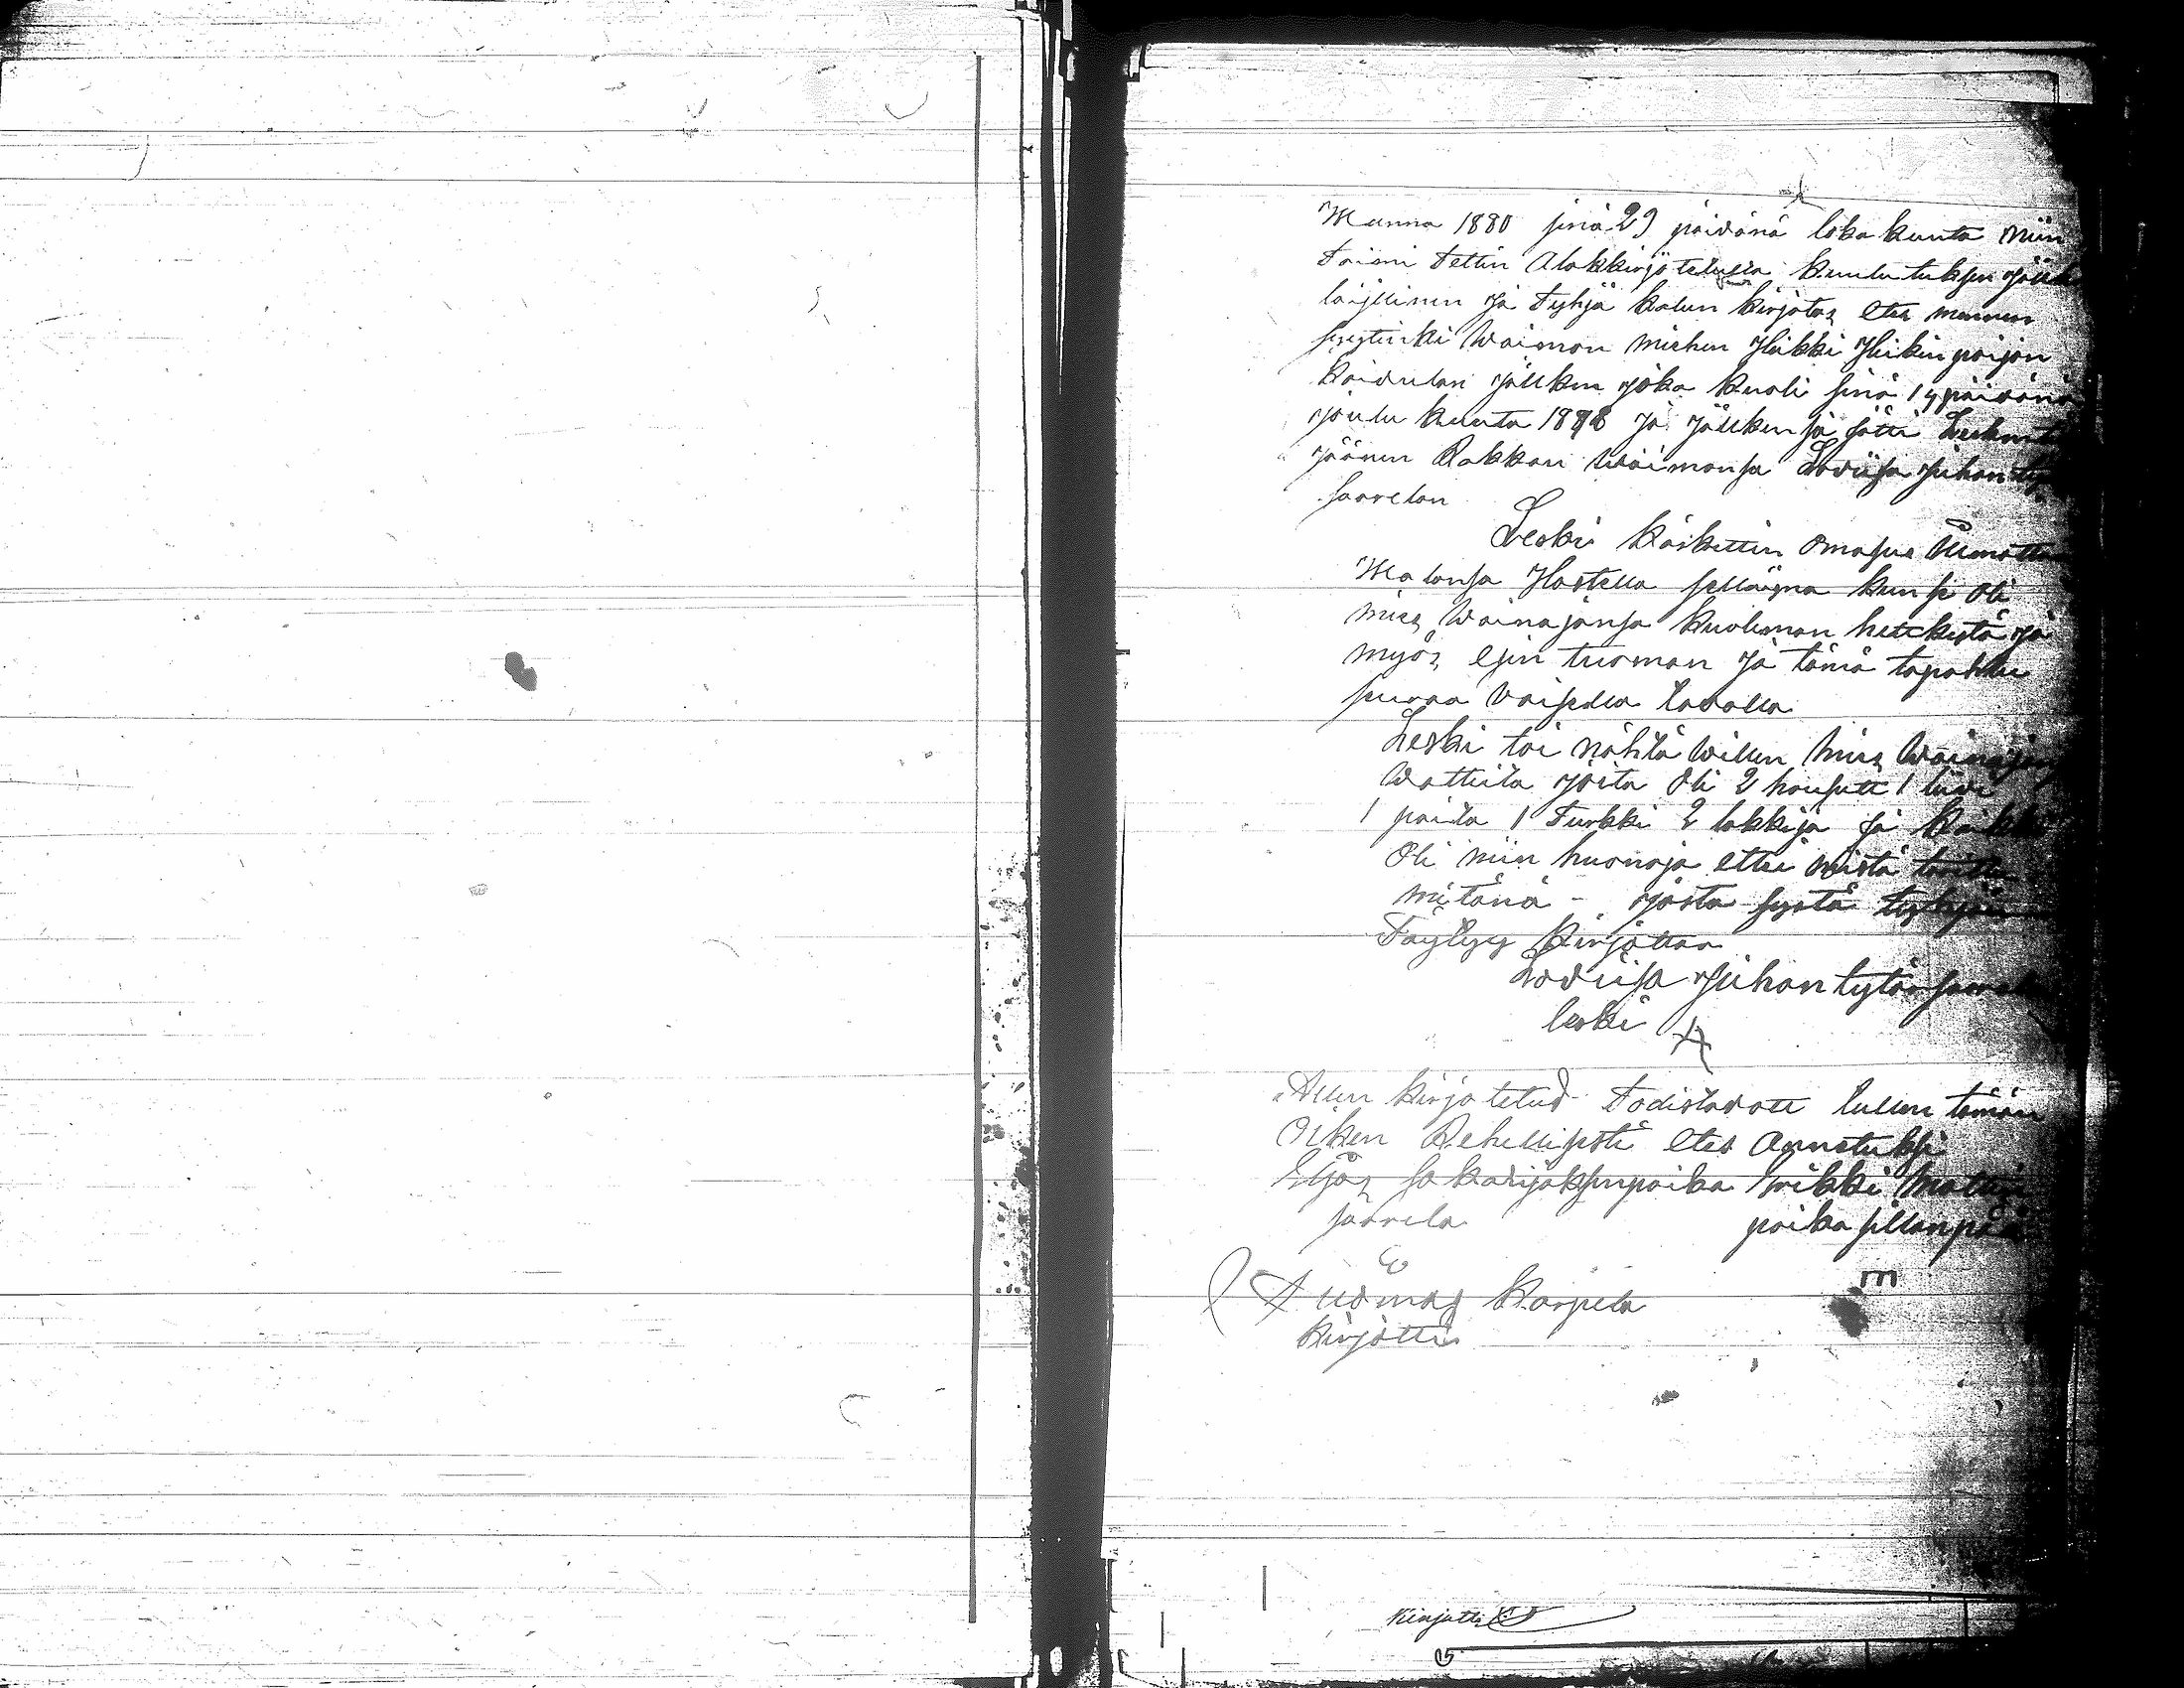 Wuanna 1880 sinä 29 päivänä loka kuuta niin
Toimi tettin Alakkirjotetulta kuulu tuksen jälk
laijllinen ja Tyhjä kalun kirjotos etes mennen
syytinki Waimon miehen Heikki Heikin poijan
Koivulan jälken joka kuoli sinä 14 päivänä
joulu kuuta 1878 ja jälkensä jätti Lesken
jäänen Rakkan Waimonsa Lovisa Juhan ty
saarelan
Leski käskettin omasue
Walansa Hastella sellaisna kun se oli
mies Wainajansa kuoleman hetkestä ja
myös esin tuoman ja tämä tapahtu
seuraa vaisella tavalla
Leski toi nähtä Willen mies Wainajan
Watteita joita oli 2 housutt 1 liivi
1 paita 1 Turkki 2 lakkija ja kaikki
oli niin huonoja ettei niistä
mitänä - josta syystä tyhjän
Täytyy kirjottaa
Loviisa Juhan tytär saarela
leski
Allen kirjotetud Todistavatt tullen tämän
Oiken Rehellisesti etes Annetuksi
Eljas sakarijaksenpoika Heikki Mattin
saarela poika sillanpää
Tuomas Karpela
kirjotti
Kirjotti
15